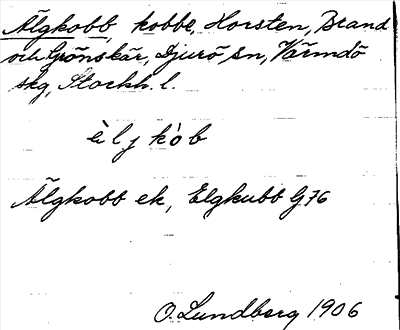 Älgkobb, kobbe, Horsten, Brand
och Grönskär, Djurö sn, Värmdö
skg, Stockh. l.
è l j k ò b
Älgkobb ek, Elgkubb G 76
O. Lundberg 1906